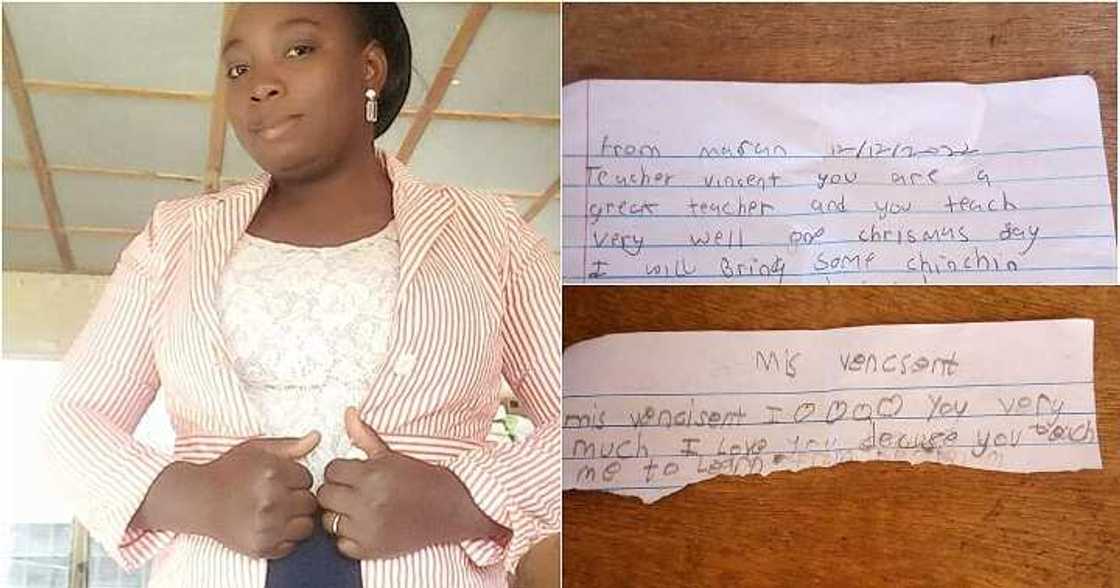 from 12/12/2022
Teacher vincent you are a
great teacher and you teach
very well chrismas day
I will Bring some chinchin
Mis vencsent
mis vencisent I you very
much I Love you becuse you teach
me to Learn